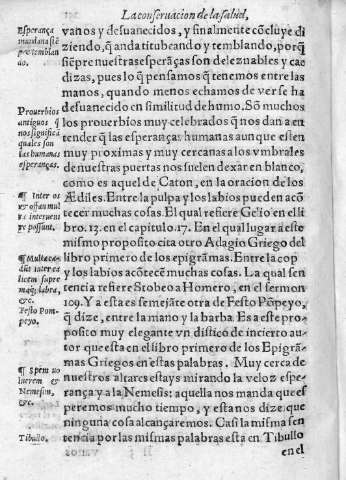 La conseruacion de la salud,
Esperança
mundana siẽ
pre temblan
do.
Prouerbios
antiguos q̃
nos significã
quales son
las humanas
esperanças.
¶ Inter os
et offam mul
ta interueni
re possunt.
¶ Multa ca-
dũt inter ca
licem supre
maq́; labra,
&c.
Festo Pom-
peyo.
¶ Spem uo
lucrem &
Nemesim,
&c.
Tibullo.
vanos y desuanecidos, y finalmente cõcluye di
ziendo, q̃ anda titubeando y temblando, porq̃
siẽpre nuestras esperãças son deleznables y cae
dizas, pues lo q̃ pensamos q̃ tenemos entre las
manos, quando menos echamos de ver se ha
desuanecido en similitud de humo. Sõ muchos
los prouerbios muy celebrados q̃ nos dan a en
tender q̃ las esperanças humanas aunque esten
muy proximas y muy cercanas a los vmbrales
de nuestras puertas nos suelen dexar en blanco,
como es aquel de Caton, en la oracion de los
Ædiles. Entre la pulpa y los labios pueden acõ
tecer muchas cosas. El qual refiere Gelio en el li
bro. 13. en el capitulo. 17. En el qual lugar a este
mismo proposito cita otro Adagio Griego del
libro primero de los epigrãmas. Entre la copa
y los labios acõtecẽ muchas cosas. La qual sen
tencia refiere Stobeo a Homero, en el sermon
109. Y a esta es semejãte otra de Festo Põpeyo,
q̃ dize, entre la mano y la barba. Es a este pro-
posito muy elegante vn distico de incierto au-
tor que esta en el libro primero de los Epigrã-
mas Griegos en estas palabras. Muy cerca de
nuestros altares estays mirando la veloz espe-
rança y a la Nemesis: aquella nos manda que es
peremos mucho tiempo, y esta nos dize que
ninguna cosa alcançaremos. Casi la misma sen
tencia por las mismas palabras esta en Tibullo
en el